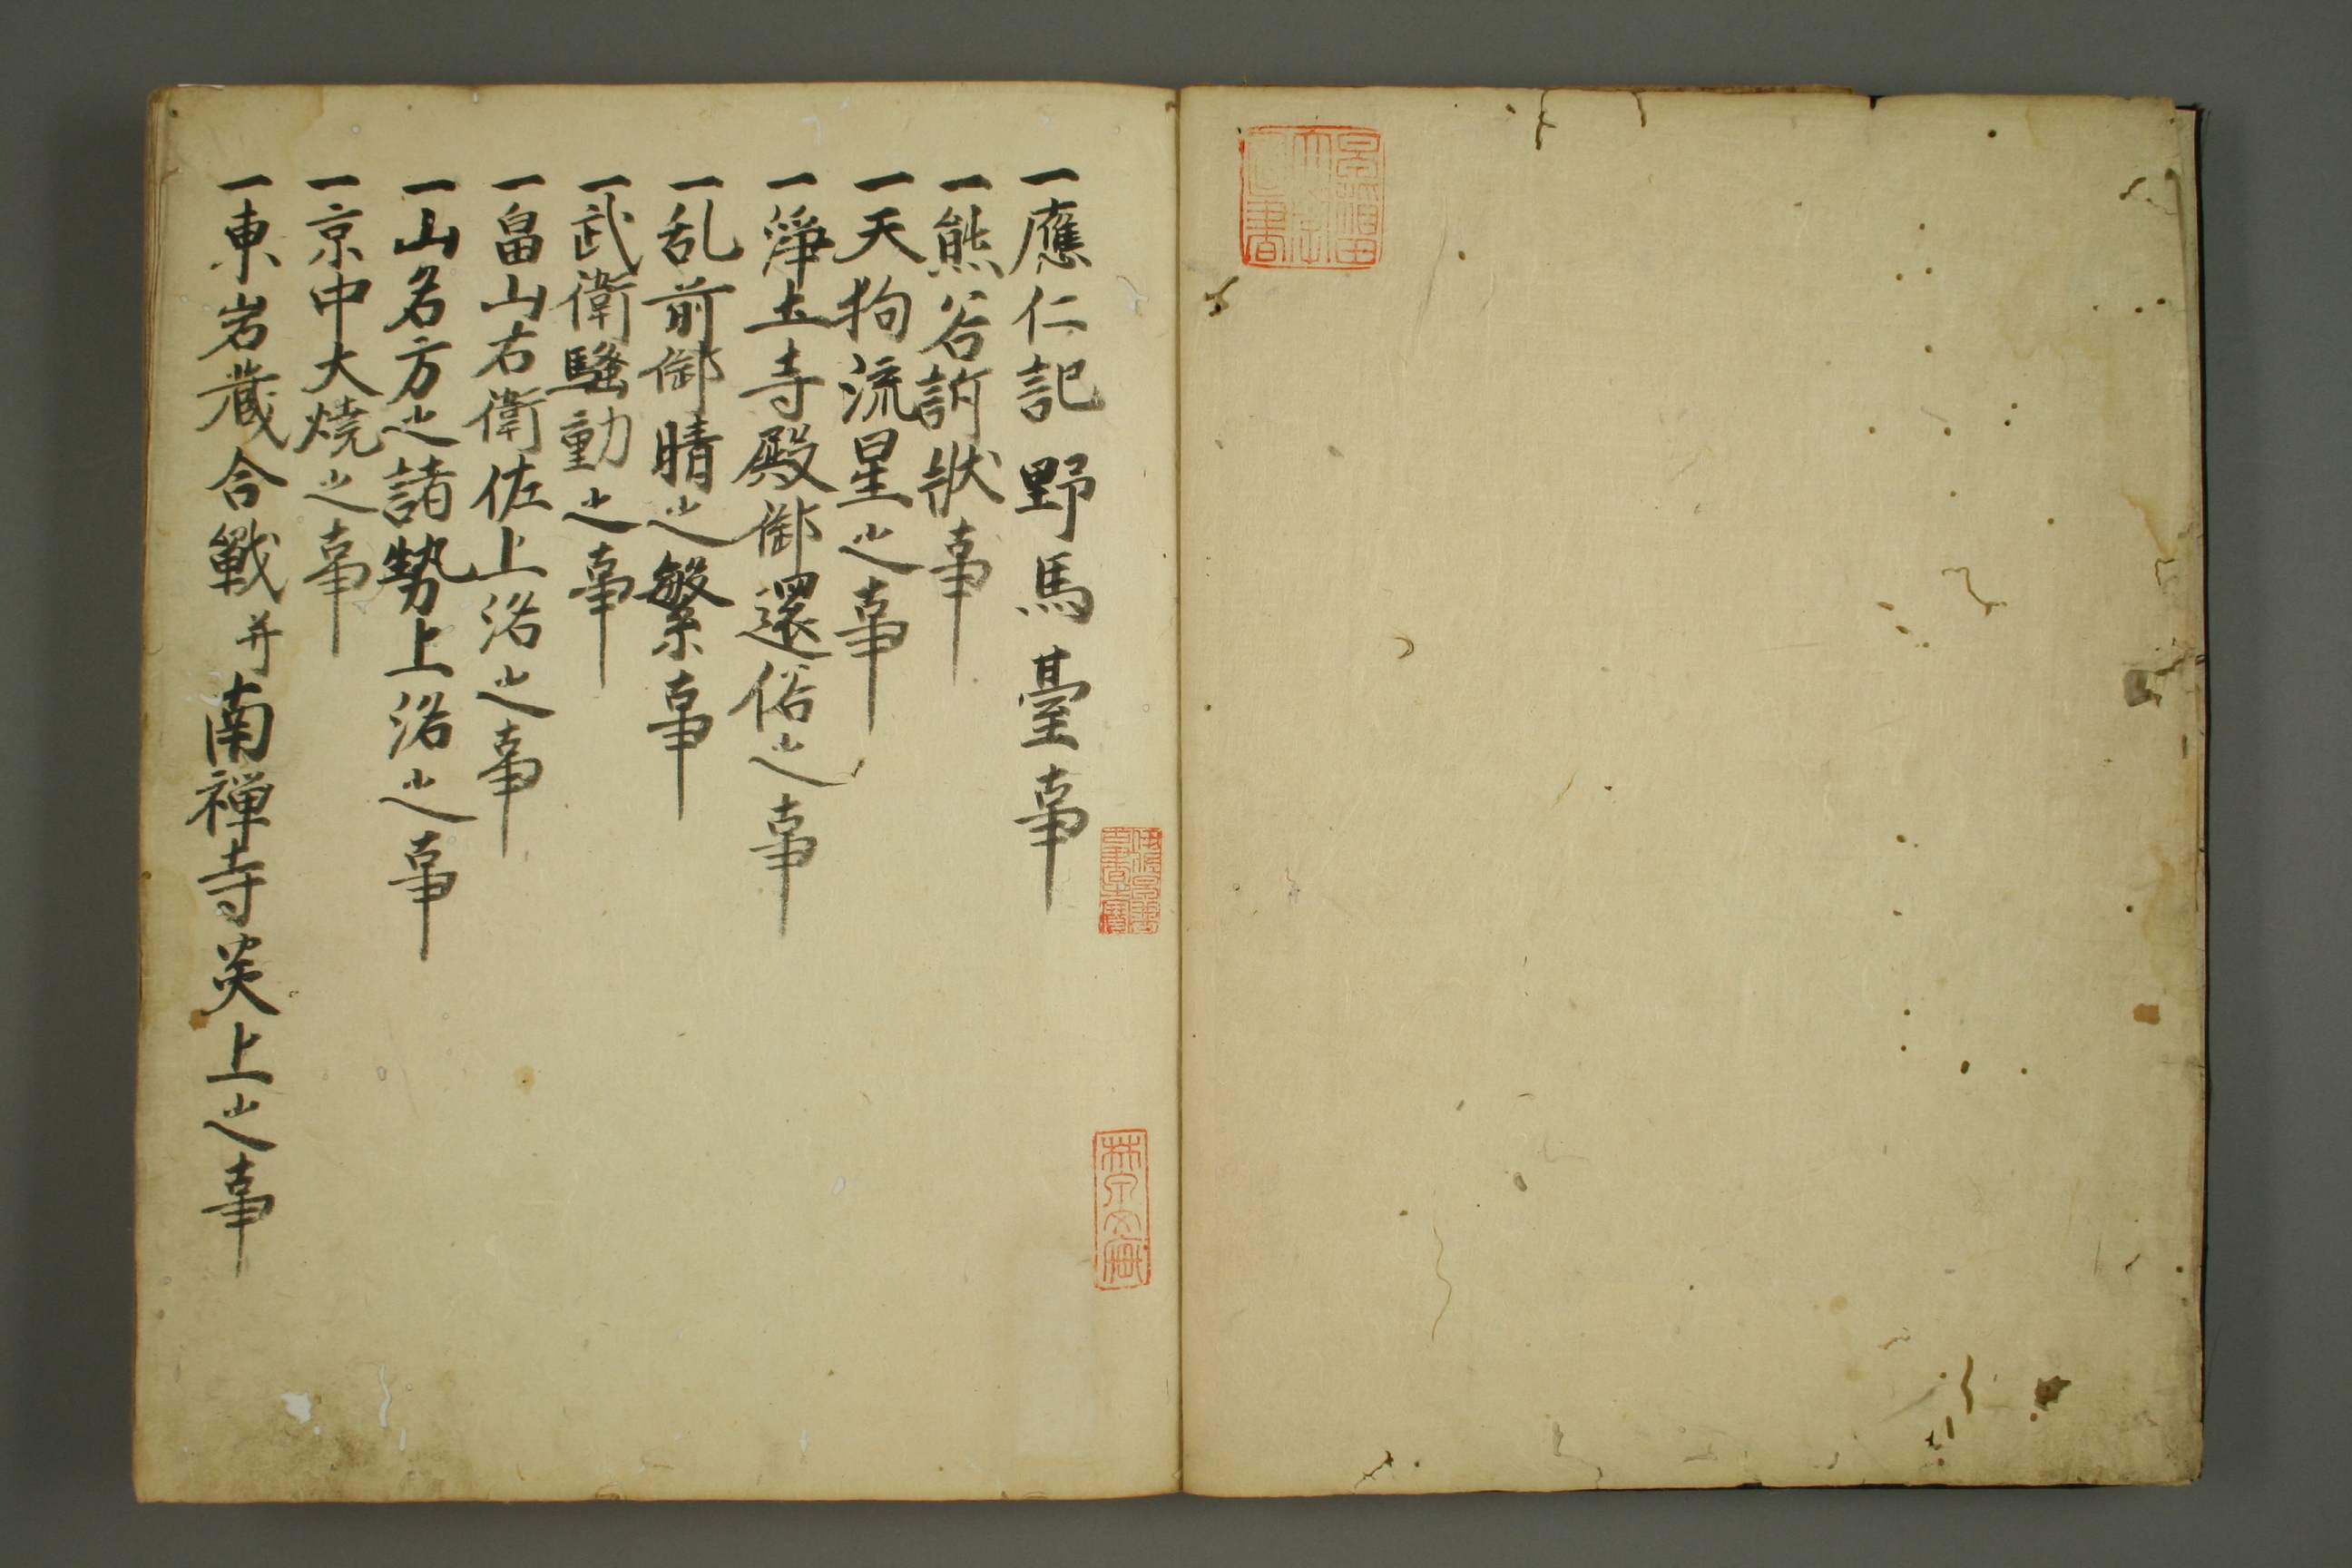 早稲田
大學
圖書
一應仁記 野馬臺事
一熊谷訴状事
一天狗流星之事
一淨土寺殿御還俗之事
一乱前御晴之繁事
一武衛騒動之事
一畠山右衛佐上洛之事
一山名方之諸勢上洛之事
一京中大焼之事
一東岩蔵合戰并南禅寺炎上之事